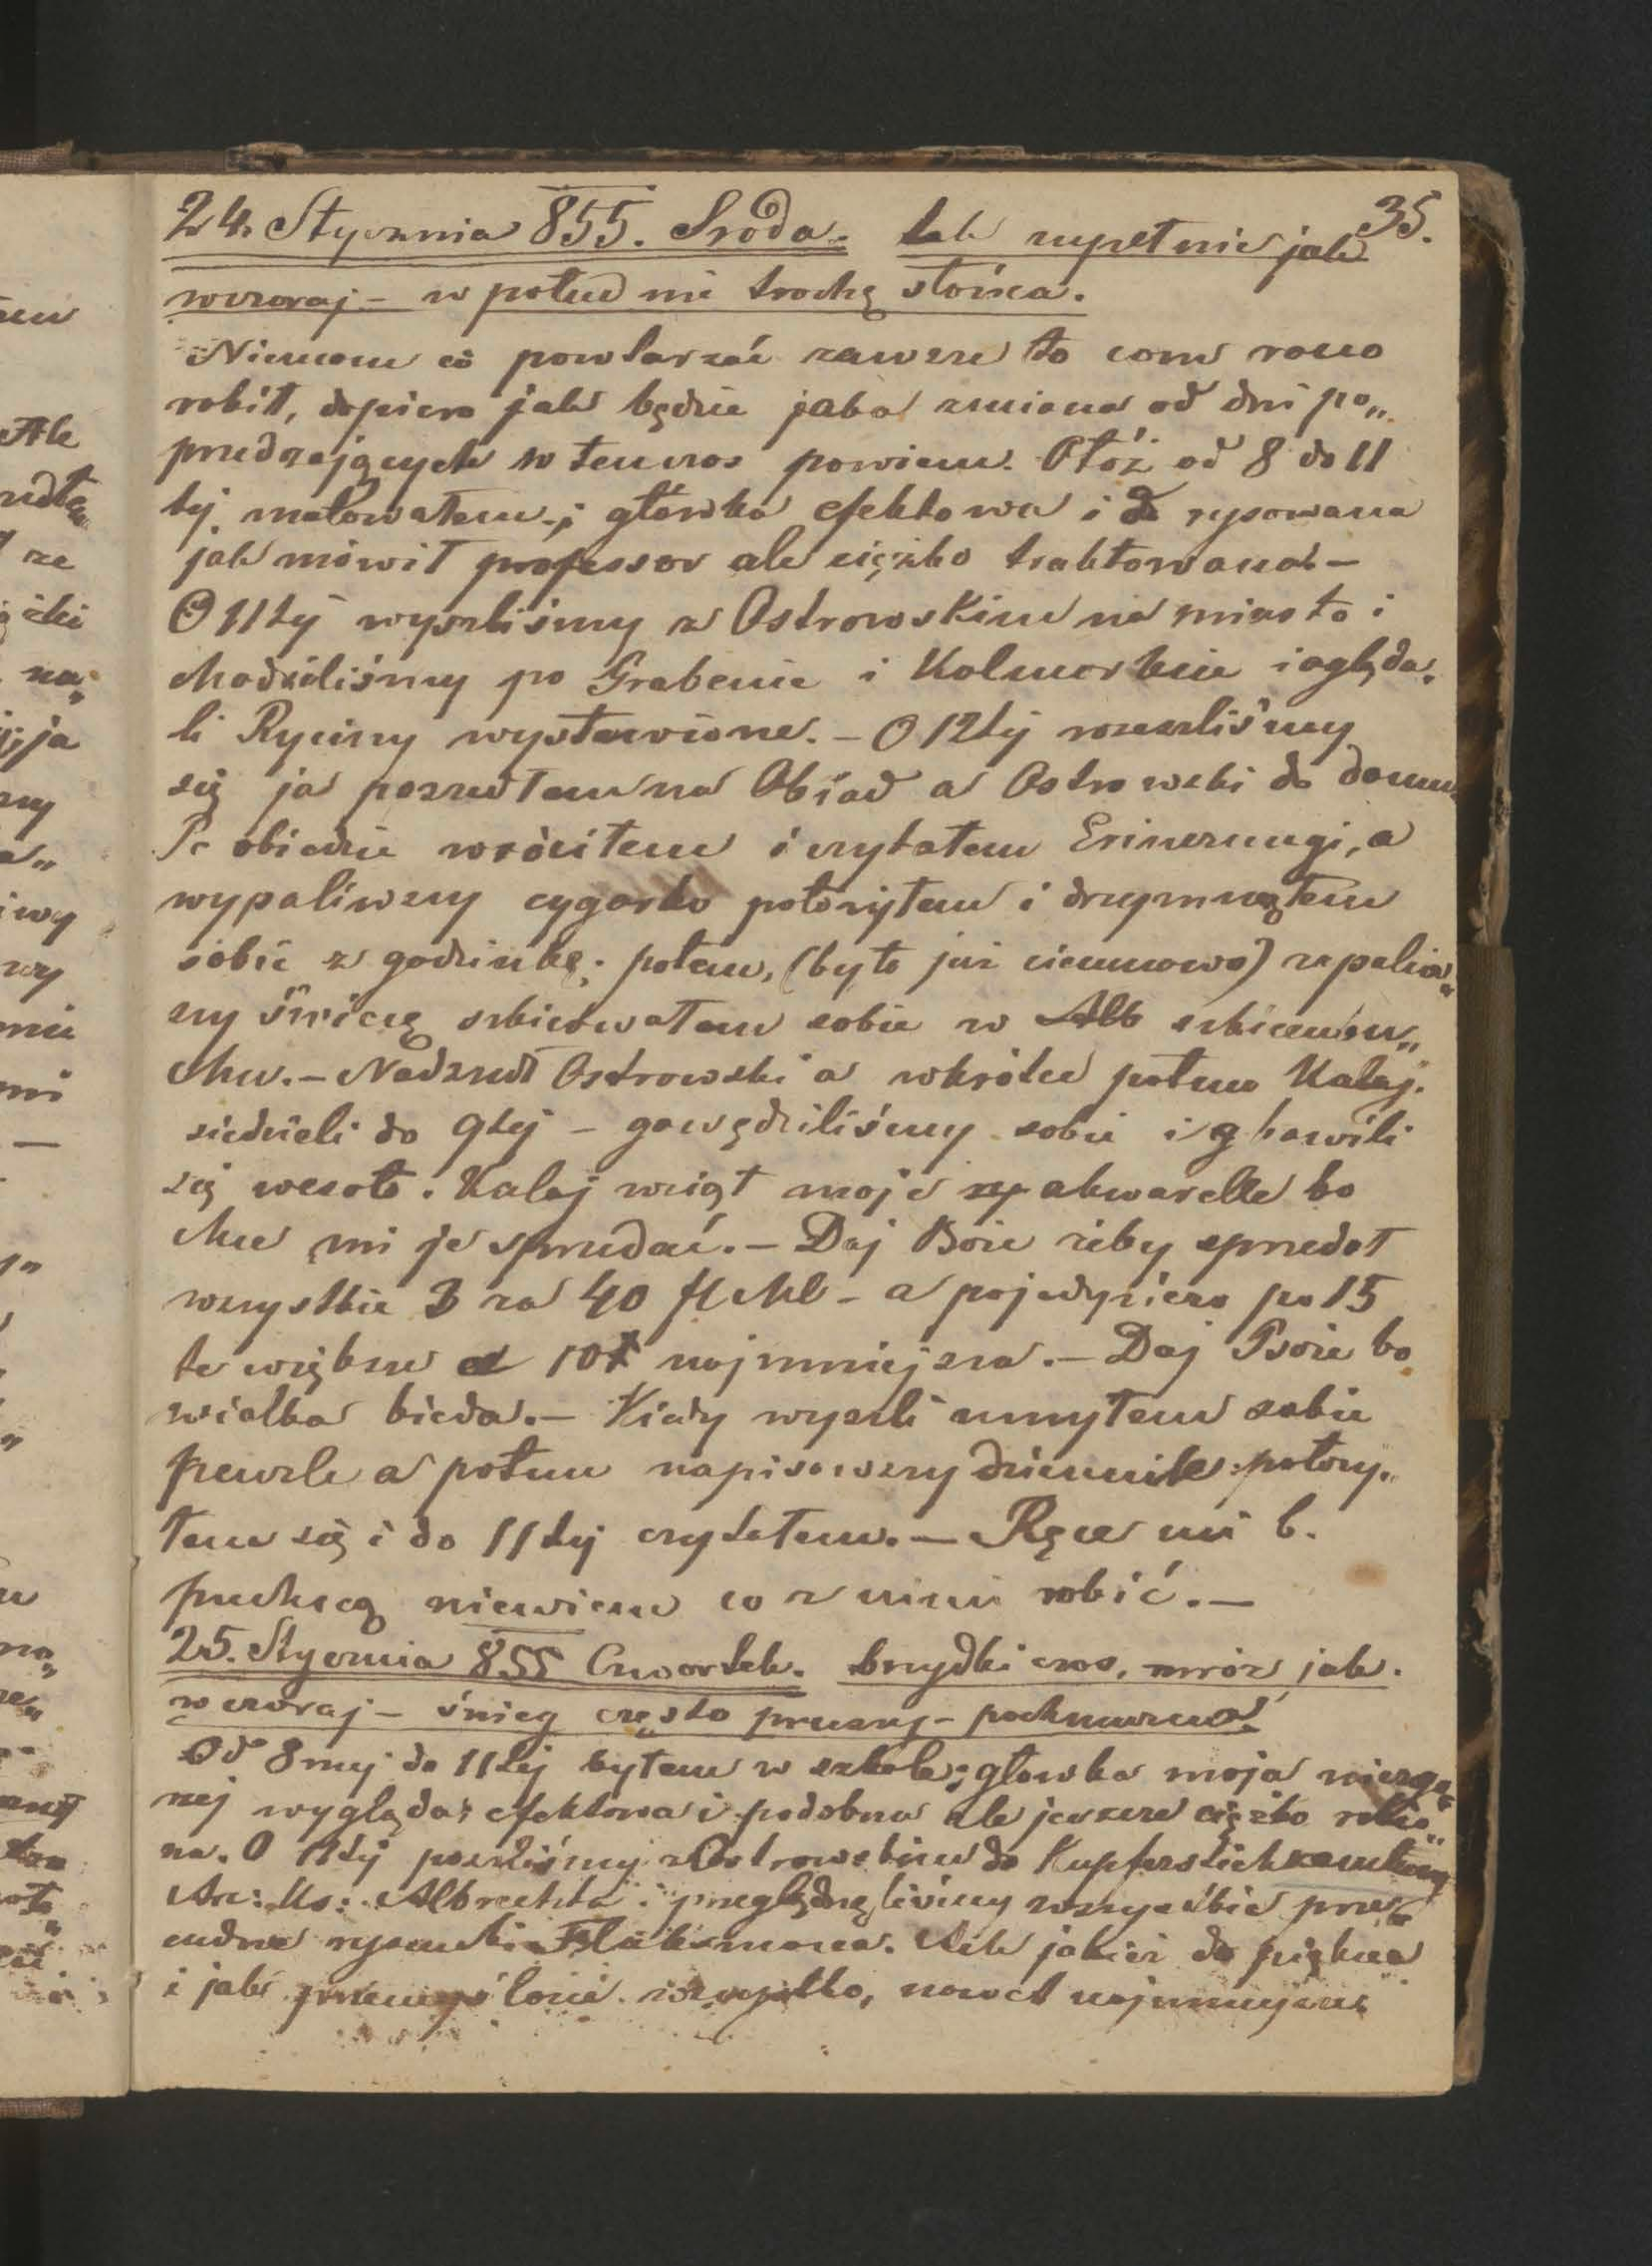 35.
24. Stycznia 855. Sroda. tak zupełnie jak
wczoraj – w połud nie trochę słońca.
Niemam co powtarzać zawsze to com rano
robił, dopiero jak będzie jaka zmiana od dni po„
przedzających to tenczas powiem. Otóż od 8 do 11
tej malowałem; główka efektowa i do rysowana
jak mówił professor ale ciężko traktowana –
O 11tej wyszliśmy z Ostrowskim na miasto i
chodziliśmy po Grabenie i Kolmarkcie i ogląda„
li Ryciny wystawione. – O 12tej rozeszliśmy
się ja poszedłem na Obiad a Ostrowski do domu.
Po obiedzie wróciłem i czytałem Erinerungi, a
wypaliwszy cygarko położyłem i drzymnąłem
sobie z godzinkę; potem, (było już ciemnawo) zapaliw„
szy świécę szkicowałem sobie w Alb szkicowni„
chu. – Nadszedł Ostrowski a wkrótce potem Kalaj.
siedzieli do 9tej – gawędziliśmy sobie i g bawili
się wesoło. Kalaj wziął moje ry akwarelle bo
chce mi je sprzedać. – Daj Boże żeby sprzedał
wszystkie 3 za 40 fl Mk – a pojedyńczo po 15
te większe a 10 najmniejsza. – Daj Boże bo
wielka bieda. – Kiedy wyszli umyłem sobie
penzle a potem napisawszy dziennik położy„
łem się i do 11tej czytałem. – Ręce mi b.
puchną niewiem co z nimi robić. –
25. Stycznia 855 Czwartek. brzydki czas, mróz jak
wczoraj – śnieg często pruszy – pochmurno.
Od 8mej do 11tej byłem w szkole; głowka moja niezgo„
rzej wygląda; efektowa i podobna ale jeszcze ciężko robio„
na. O 11tej poszliśmy z Ostrowskim do Kupferstich
Arc: Ks: Albrechta i przeglądnęliśmy wszystkie prze„
cudne rysunki Flaksmana. Ach jakież to piękne
i jak przemyślone wszystko, nawet najmniejsze